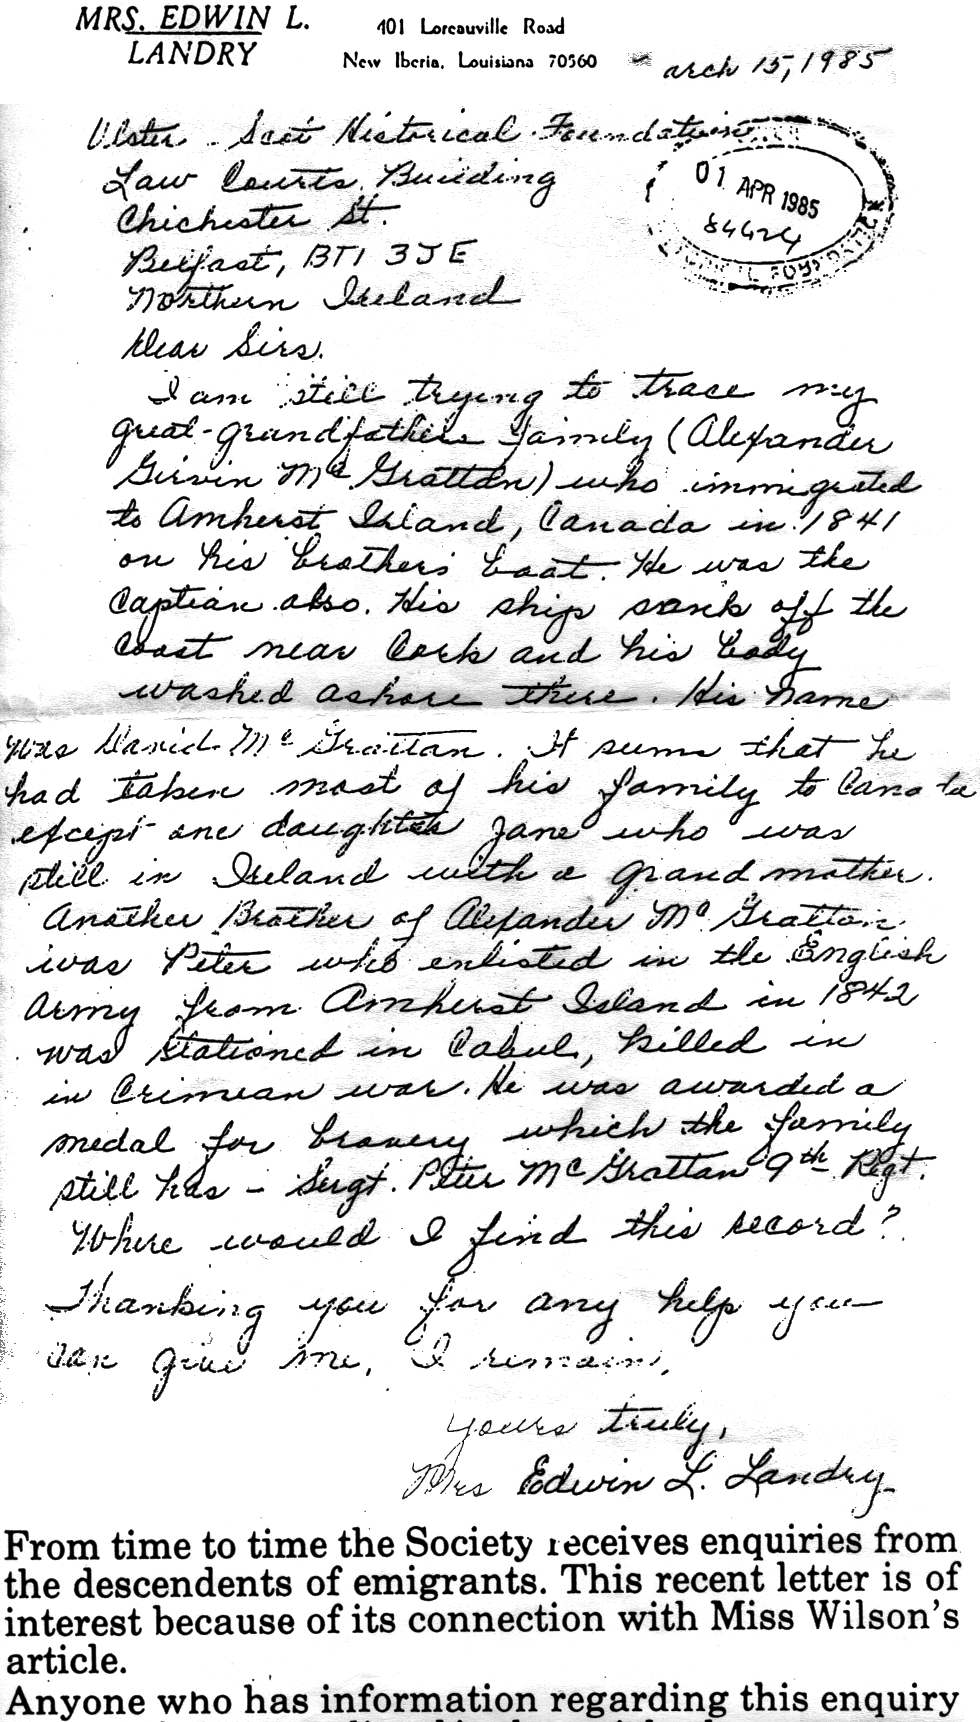 MRS. EDWIN L.
LANDRY
401 Loreauville Road
New Iberia, Louisiana 70560
arch 15, 1985
Ulster - Scot Historical Foundation
Law Courts Building
Chichester St.
Belfast, BT1 3JE
Northern Ireland
01 APR 1985
84424
Dear Sirs.
I am still trying to trace my
great-grandfathers family (Alexander
Girvin Mc Grattan) who immigrated
to Amherst Island, Canada in 1841
on his brothers boat. He was the
Captian also. His ship sank off the
Coast near Cork and his body
washed ashore there. His name
was David Mc Grattan. It sums that he
had taken most of his family to Canada
except one daughter Jane who was
still in Ireland with a grandmother.
Another Brother of Alexander Mc Grattan
was Peter who enlisted in the English
Army from Amherst Island in 1842
was stationed in Cabul, killed in
in Crimean war. He was awarded a
medal for bravery which the family
still has - Sergt. Peter McGrattan 9th Regt.
Where would I find this record?
Thanking you for any help you
can give me, I remain,
Yours truly,
Mrs Edwin L. Landry
From time to time the Society receives enquiries from
the descendents of emigrants. This recent letter is of
interest because of its connection with Miss Wilson's
article.
Anyone who has information regarding this enquiry